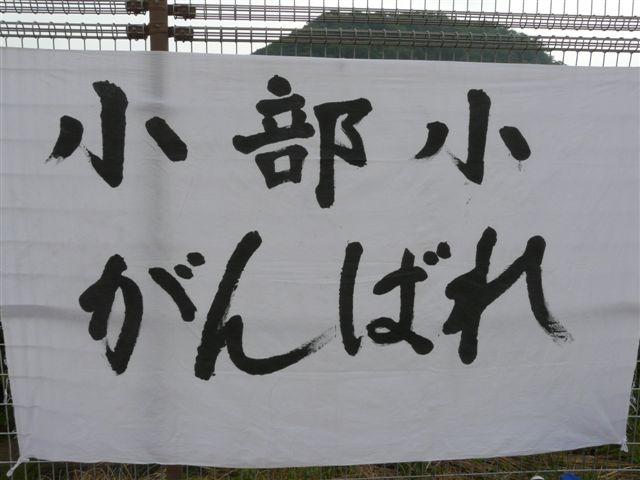 小部小
がんばれ